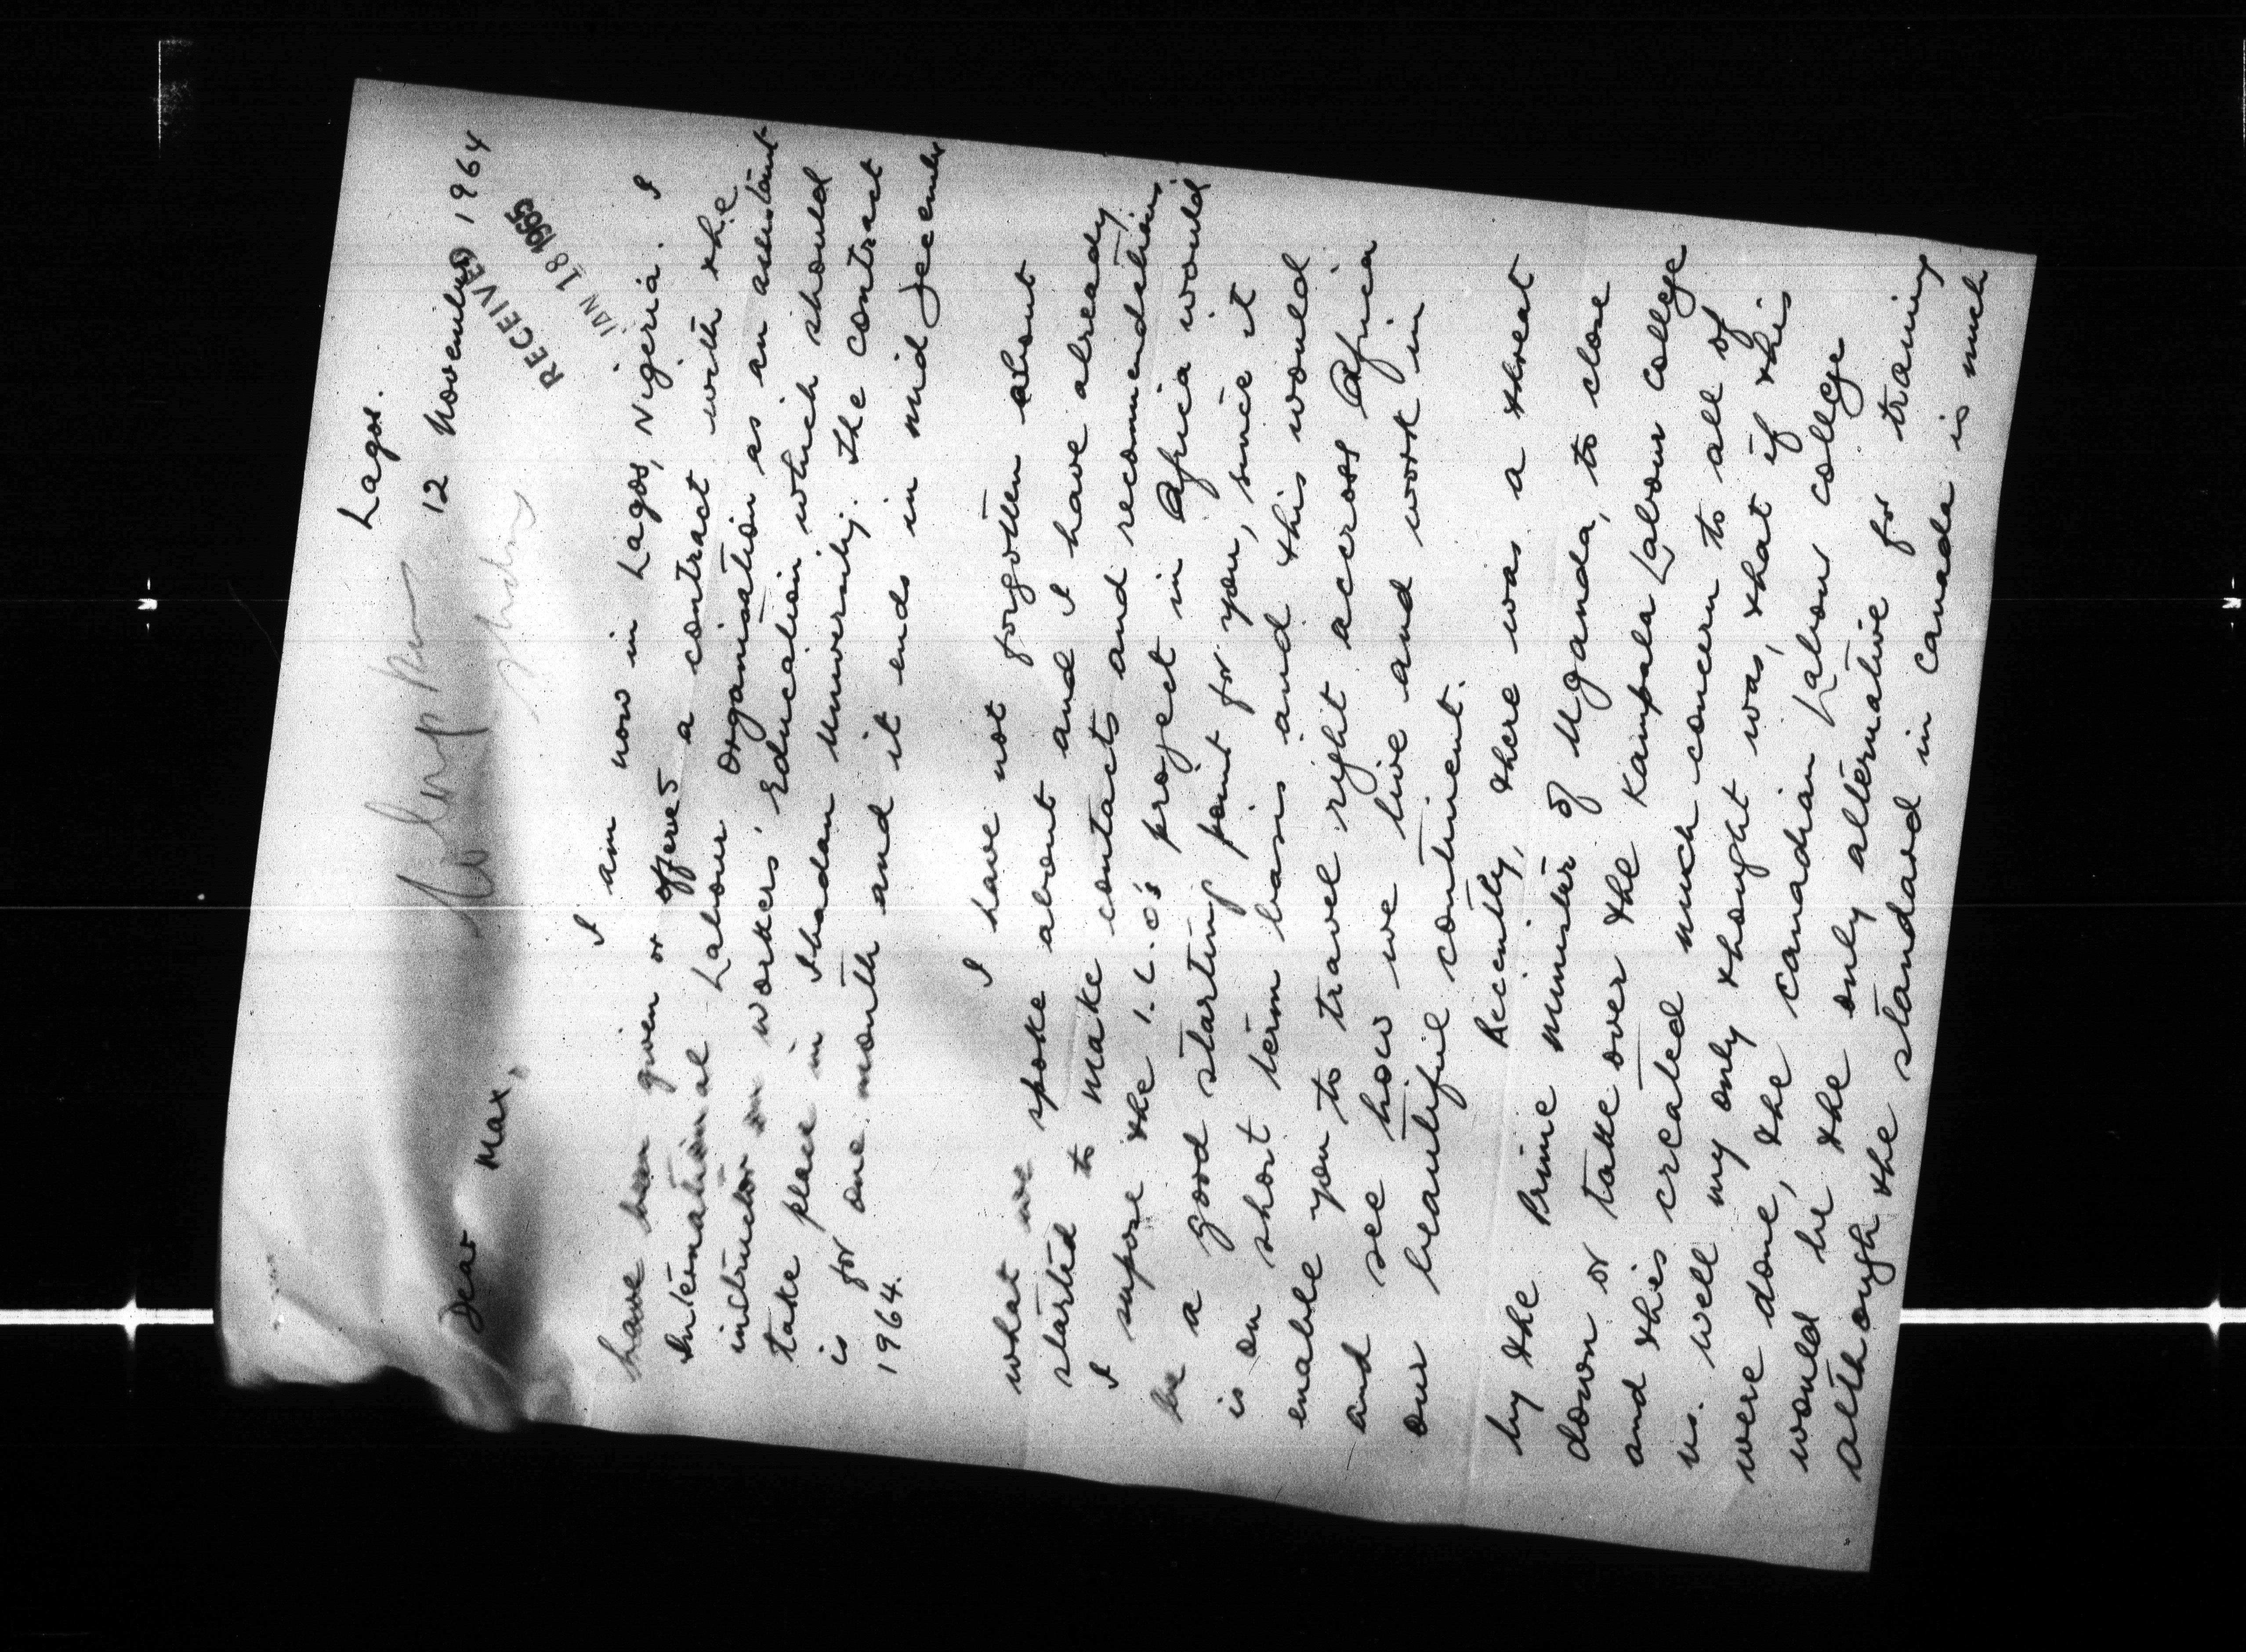 Lagos.
12 November 1964
RECEIVED
JAN 18 1965
Dear Max,
I am now in Lagos, Nigeria. I
have been given or offered a contract with the
International Labour Organisation as an assistant
instructor in workers' Education which should
take place in Ibadan University. The contract
is for one month and it ends in mid December
1964.
I have not forgotten about
what we spoke about and I have already
started to make contacts and recommendations.
I supose the I.L.O's project in Africa would
be a good starting point for you, since it
is on short term basis and this would
enable you to travel right across Africa
and see how we live and work in
our beautiful continent.
Recently, there was a threat
by the Prime Minister of Uganda, to close
down or take over the Kampala Labour College
and this created much concern to all of
us. Well my only thought was, that if this
were done, the Canadian Labour College
would be the only alternative for training
although the standard in Canada is much